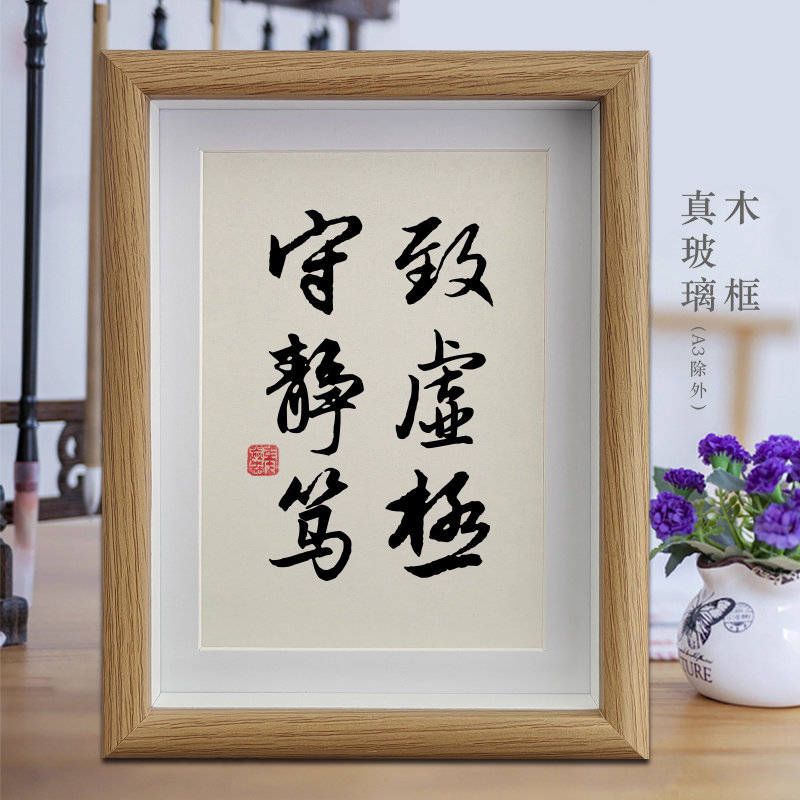 致虚極
守静笃
木框
真玻璃
(A3除外)
TURE